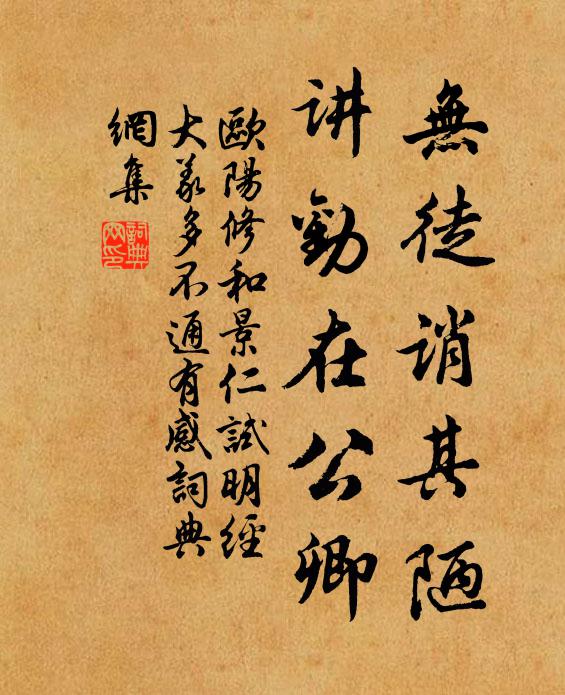 無徒誚其陋
讲勸在公卿
歐陽修和景仁試明經
大義多不通有感詞典
網集
詞典
网印